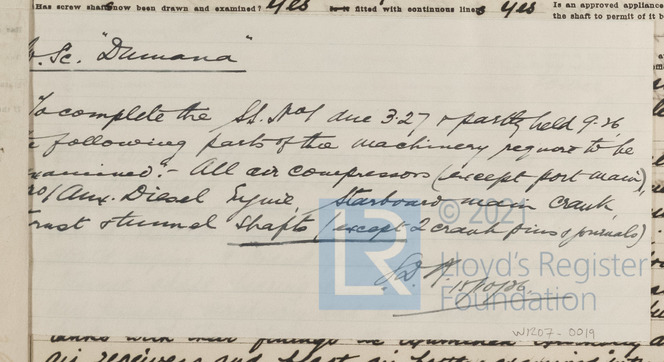 Has screw shaft now been drawn and examined? Yes is it fitted with continuous liners Yes Is an approved appliance
the shaft to permit of it b
Sc. "Dumana"
To complete the SS. No1 due 3.27 & partly held 9.26
following parts of the machinery require to be
examined:- All air compressors (except port main),
No1 Aux. Diesel Engine, Starboard main crank,
thrust & tunnel shafts (except 2 crank pins & journals)
15/10/26.
© 2021
LR
Lloyd's Register
Foundation
W1207-0019